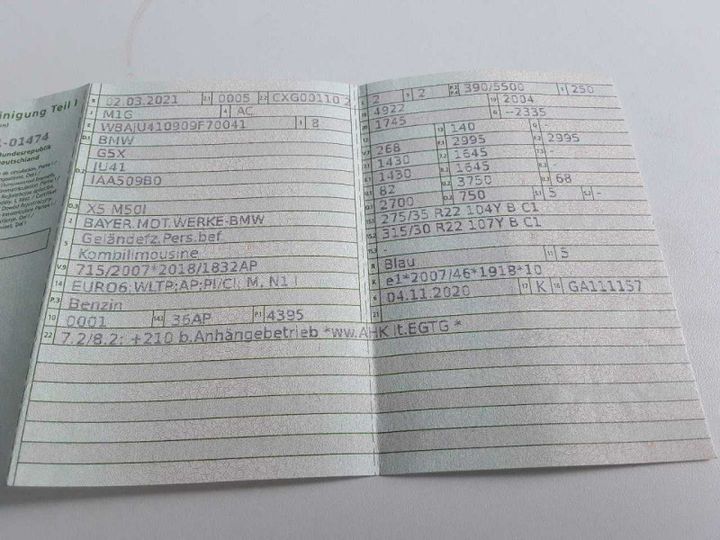 inigung Teil I
-01474
Bundesrepublik
Deutschland
B 02.03.2021 2.1 0005 2.2 CXG00110 2
J M1G 4 AC
E WBAJU410909F70041 3 8
D.1 BMW
D.2 G5X
JU41
IAA509B0
D.3 X5 M50I
2 BAYER.MOT.WERKE-BMW
5 Geländefz.Pers.bef.
Kombilimousine
V.9 715/2007*2018/1832AP
14 EURO6;WLTP;AP;PI/CI; M, N1 I
P.3 Benzin
10 0001 14.1 36AP P.1 4395
22 7.2/8.2: +210 b.Anhängebetrieb *ww.AHK lt.EGTG *
L 2 9 2 P.2 P.4 390/5500 T 250
18 4922 19 2004
20 1745 G --2335
12 - 13 140 Q -
V.7 268 F.1 2995 F.2 2995
7.1 1430 7.2 1645 7.3 -
8.1 1430 8.2 1645 8.3 -
U.1 82 U.2 3750 U.3 68
O.1 2700 O.2 750 S.1 5 S.2 -
15.1 275/35 R22 104Y B C1
15.2 315/30 R22 107Y B C1
15.3 -
R Blau 11 5
K e1*2007/46*1918*10
6 04.11.2020 17 K 16 GA111157
21